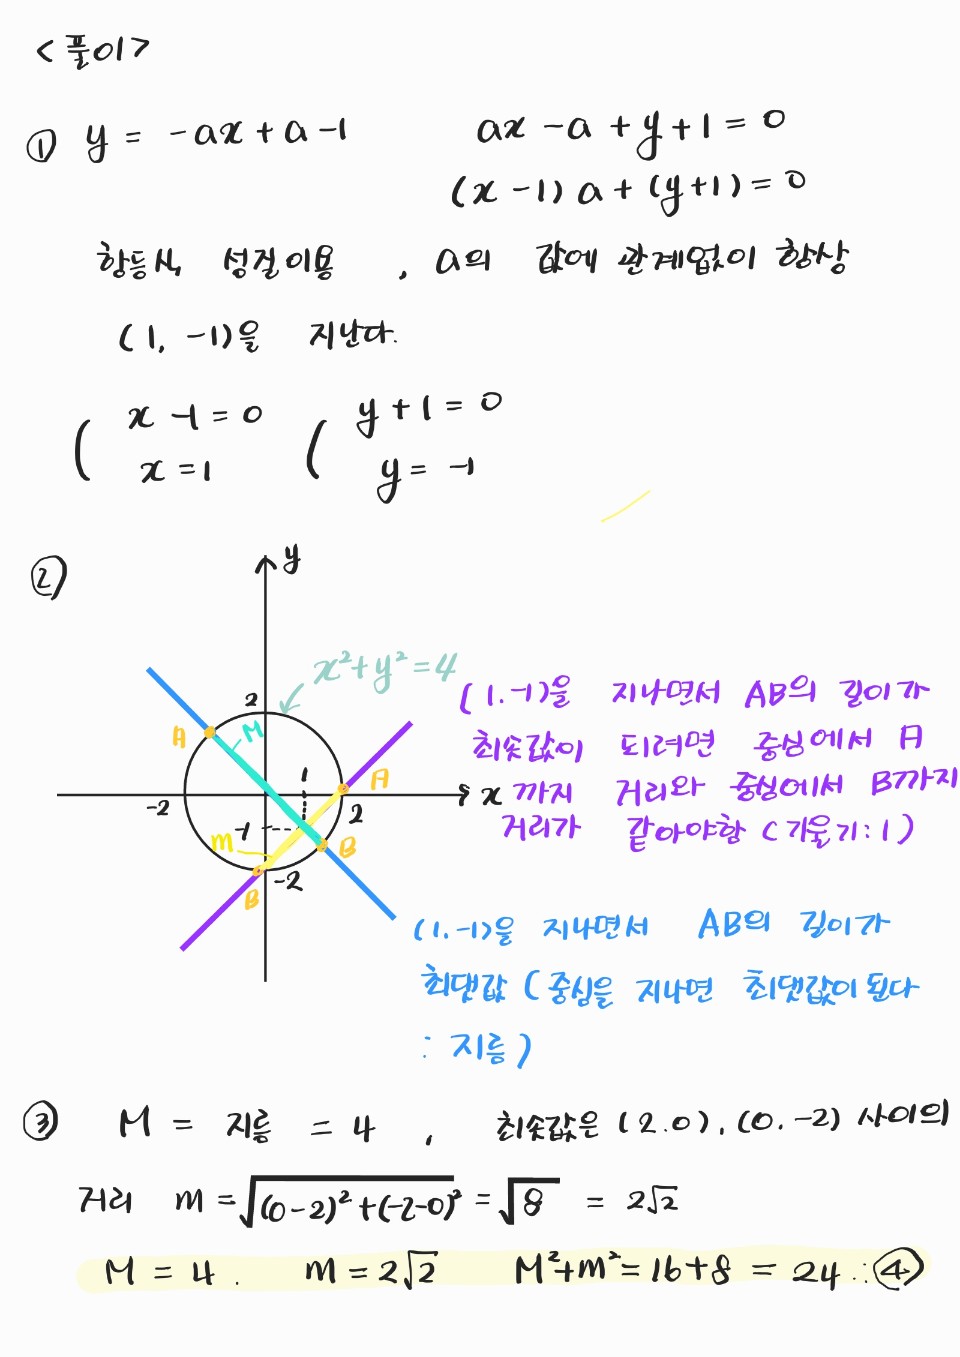 <풀이>
① y = -ax + a -1
ax - a + y + 1 = 0
(x -1) a + (y+1) = 0
항등식 성질이용 , a의 값에 관계없이 항상
(1, -1)을 지난다.
( x -1 = 0
x = 1
( y + 1 = 0
y = -1
②
y
x²+y²=4
2
A
M
-2
1
A
x
2
-1
m
B
B
-2
(1.-1)을 지나면서 AB의 길이가
최솟값이 되려면 중심에서 A
까지 거리와 중심에서 B까지
거리가 같아야함 (기울기:1)
(1.-1)을 지나면서 AB의 길이가
최댓값 (중심을 지나면 최댓값이 된다
: 지름)
③ M = 지름 = 4 , 최솟값은 (2.0), (0.-2) 사이의
거리 m = √(0-2)²+(-2-0)² = √8 = 2√2
M = 4 . m = 2√2 M²+m²=16+8 = 24 ∴ ④